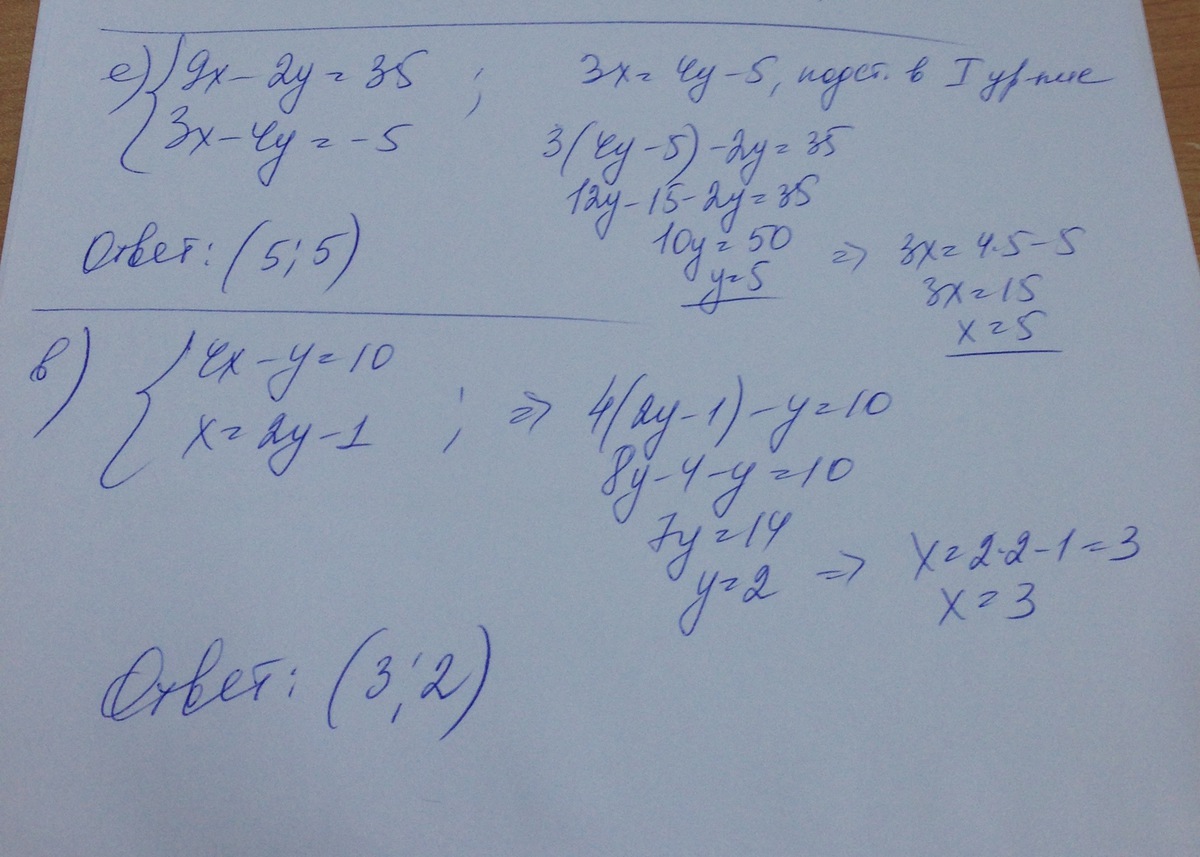 е) { 9x - 2y = 35 ; 3x = 4y - 5, подст. в I ур-ние
3x - 4y = -5
3(4y - 5) - 2y = 35
12y - 15 - 2y = 35
10y = 50
y = 5
=> 3x = 4·5 - 5
3x = 15
x = 5
Ответ: (5; 5)
в) { 4x - y = 10
x = 2y - 1 ; => 4(2y - 1) - y = 10
8y - 4 - y = 10
7y = 14
y = 2 => x = 2·2 - 1 = 3
x = 3
Ответ: (3; 2)